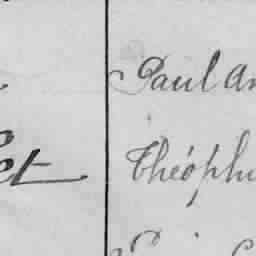 Paul An
et
Théophi